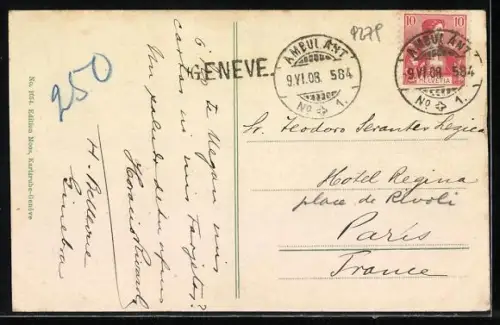 No. 1054. Edition Mone, Karlsruhe-Genève
250
9279
GENEVE.
AMBULANT
9.VI.08. 584
No 1.
10 10
HELVETIA
AMBULANT
9.VI.08. 584
No 1.
te llegan mis
cartas ni mis tarjetas?
Un saludo de tu
H. Bellevue
Ginebra
Sr. Teodoro
Hotel Regina
place de Rivoli
Paris
France